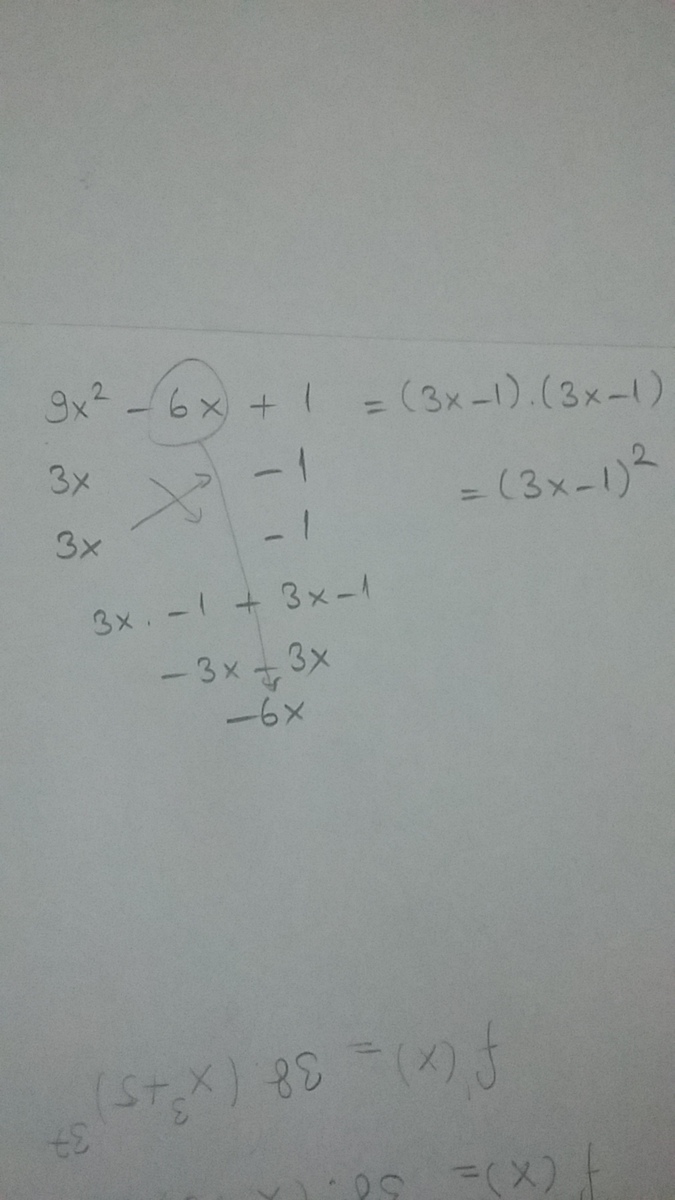 9x² - 6x + 1 = (3x-1).(3x-1)
3x -1 = (3x-1)²
3x -1
3x. -1 + 3x-1
-3x - 3x
-6x
f'(x) = 38 (x³+5)³⁷
f'(x) =